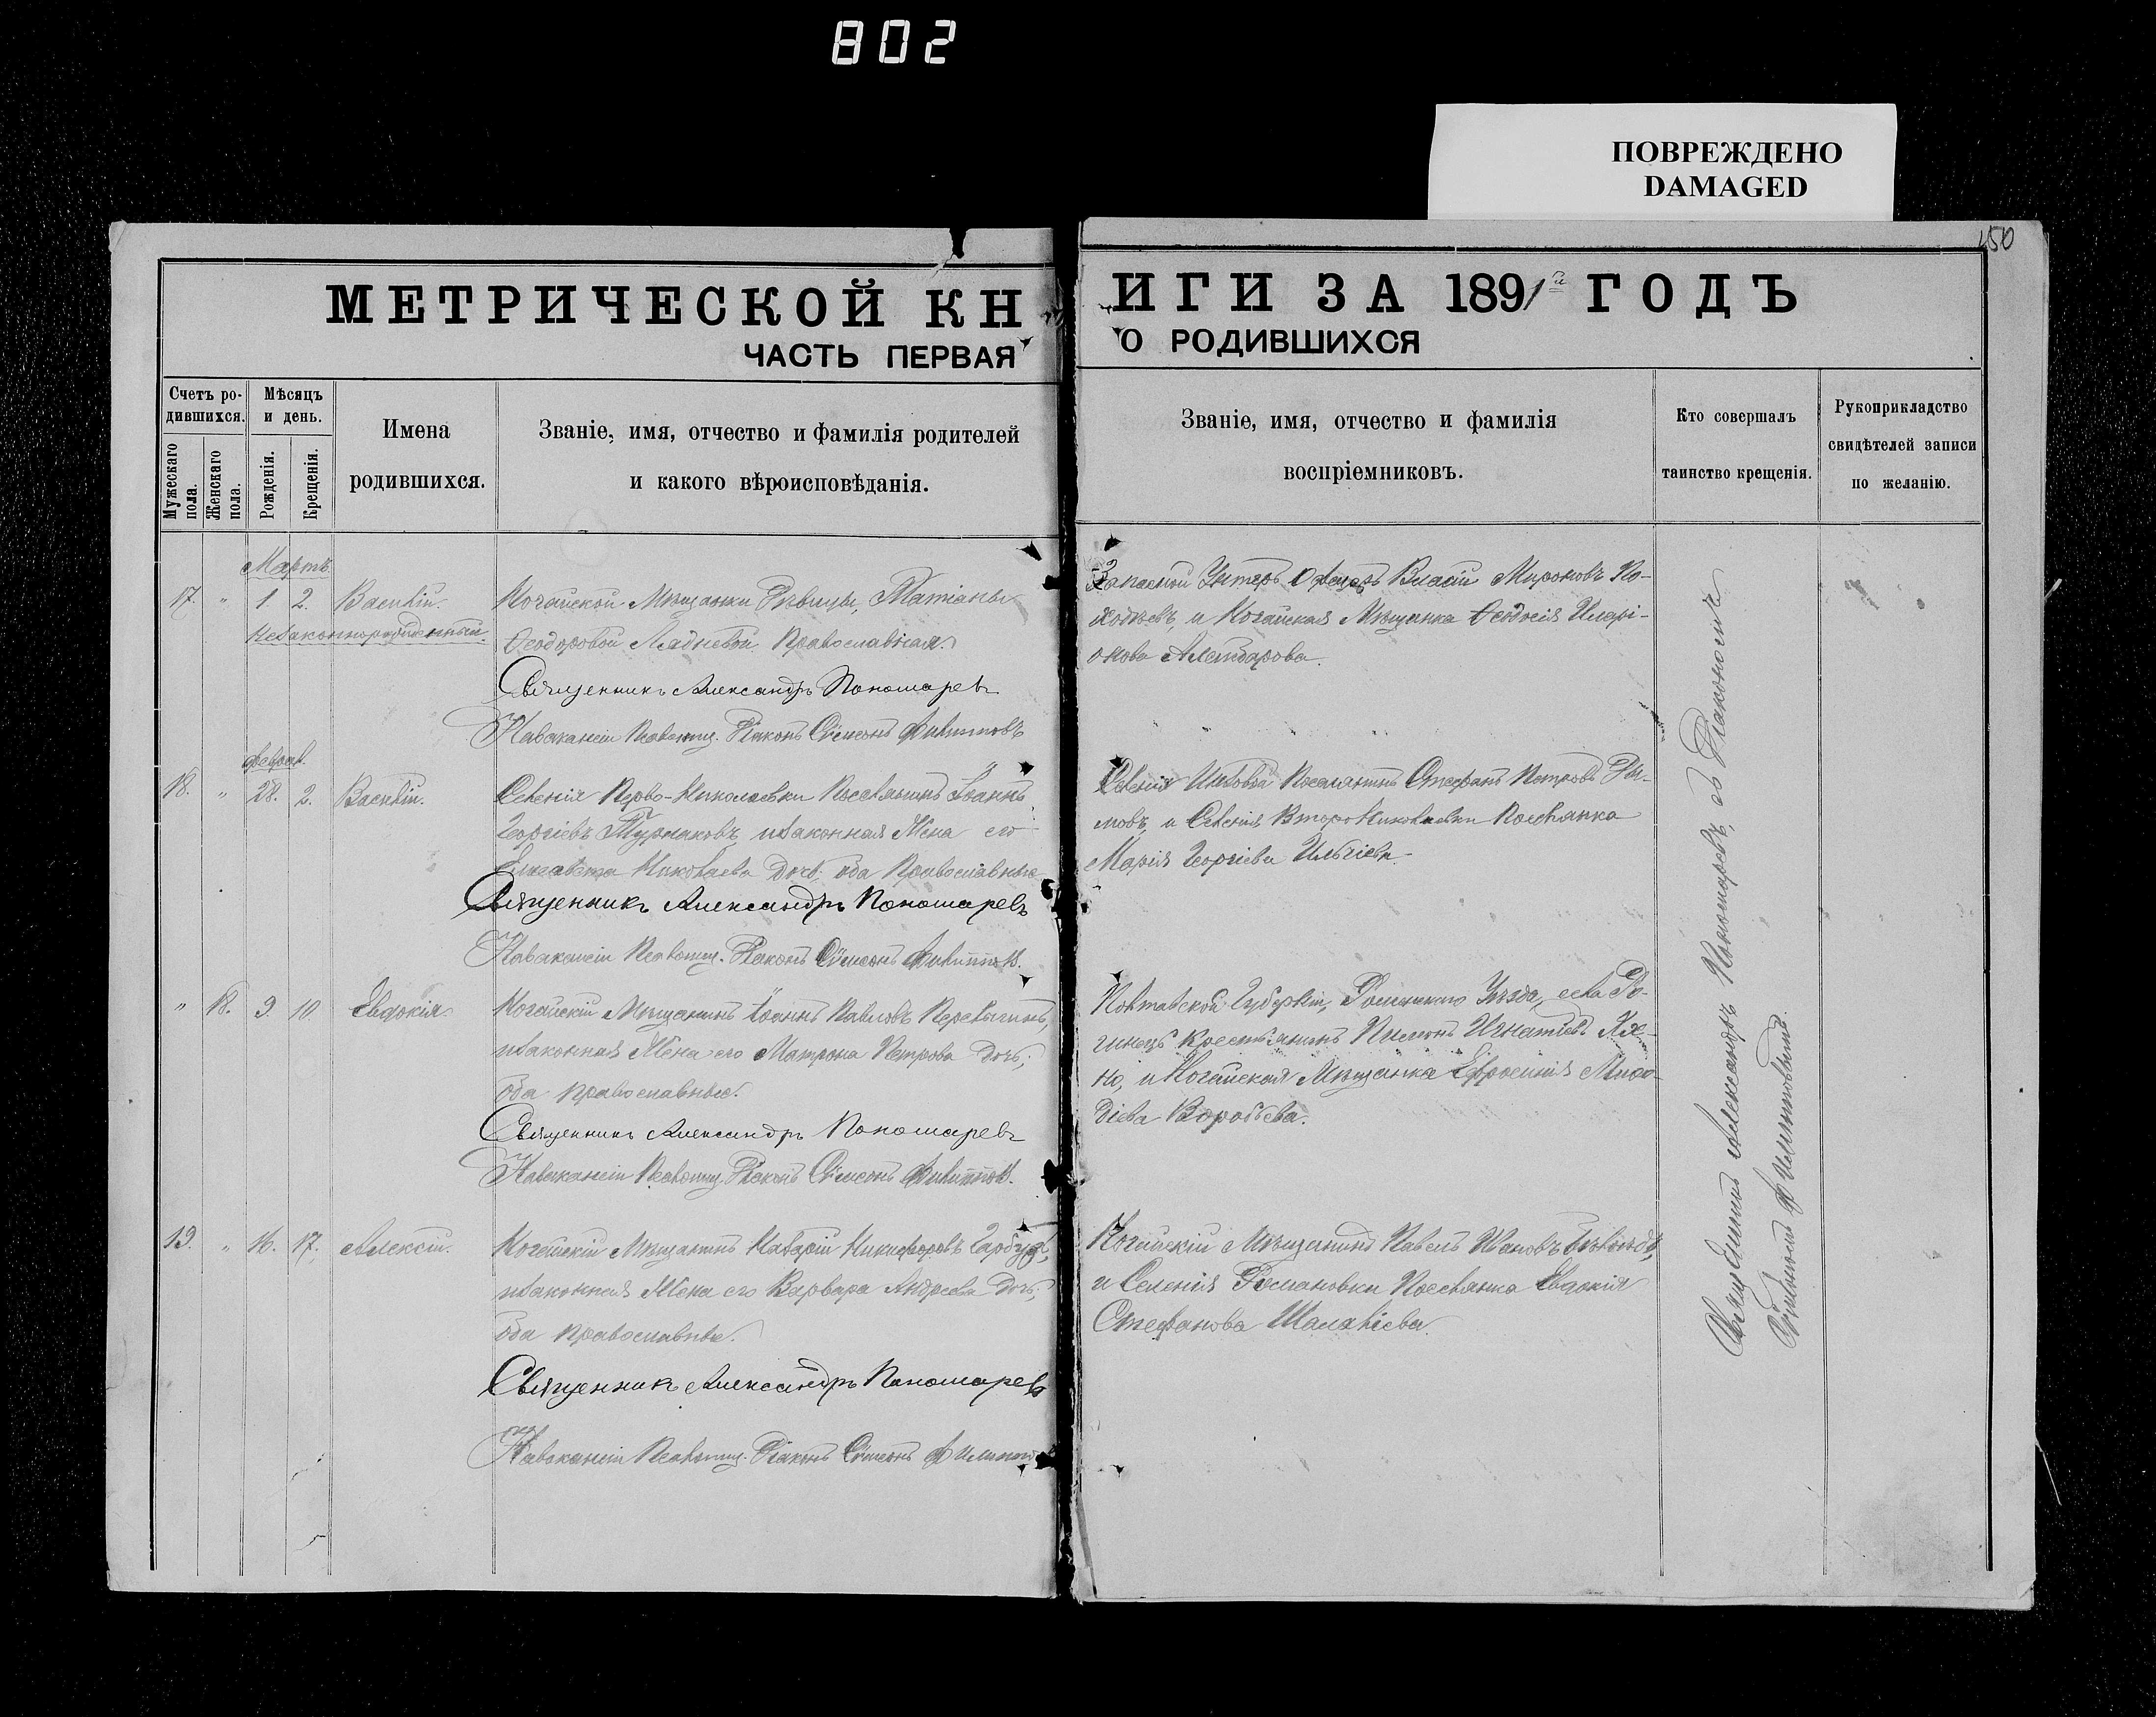 802
ПОВРЕЖДЕНО
DAMAGED
150
МЕТРИЧЕСКОЙ КН
ИГИ ЗА 1891й ГОДЪ
ЧАСТЬ ПЕРВАЯ
О РОДИВШИХСЯ
Счетъ родившихся.
Мужескаго пола.
Женскаго пола.
Мѣсяцъ и день.
Рожденія.
Крещенія.
Имена
родившихся.
Званіе, имя, отчество и фамилія родителей
и какого вѣроисповѣданія.
Званіе, имя, отчество и фамилія
воспріемниковъ.
Кто совершалъ
таинство крещенія.
Рукоприкладство
свидѣтелей записи
по желанію.
Мартъ
17. " 1 2. Василій.
незаконнорожденный.
Ногайской Мѣщанки Дѣвицы, Татіаны
Ѳеодоровой Ладневой Православная.
Священникъ Александръ Пономаревъ
На вакансіи Псаломщ. Діаконъ Сѵмеонъ Филипповъ
Запасной Унтеръ Офицеръ Власій Мироновъ
и Ногайская Мѣщанка Ѳеодосія Иларі-
онова
Феврал.
18. " 28. 2. Василій.
Селенія Перво-Николаевки Поселянинъ Іоаннъ
Георгіевъ Турлаковъ, и законная Жена его
Елисавета Николаева дочь; оба Православные
Священникъ Александръ Пономаревъ
На вакансіи Псаломщ. Діаконъ Сѵмеонъ Филипповъ.
Селенія Поселянинъ Стефанъ Петровъ Ды-
мовъ, и Селенія Второ Николаевки Поселянка
Марія Георгіева
" 18. 9. 10 Евдокія.
Ногайскій Мѣщанинъ Іоаннъ Павловъ Перевычинъ,
и законная Жена его Матрона Петрова дочь;
оба православные.
Священникъ Александръ Пономаревъ
На вакансіи Псаломщ. Діаконъ Сѵмеонъ Филипповъ.
Полтавской Губерніи, Роменскаго Уѣзда, села Ро-
гинецъ Крестьянинъ Пименъ Игнатіевъ
и Ногайская Мѣщанка Ефросинія Меѳо-
діева Воробьева.
19. " 16. 17. Алексій.
Ногайскій Мѣщанинъ Назарій Никифоровъ Гарбузъ,
и законная Жена его Варвара Андреева дочь;
оба православные.
Священникъ Александръ Пономаревъ
На вакансіи Псаломщ. Діаконъ Сѵмеонъ Филиппов
Ногайскій Мѣщанинъ Павелъ Ивановъ
и Селенія Романовки Поселянка Евдокія
Стефанова
Священникъ Александръ Пономаревъ, съ Діакономъ
Сѵмеономъ Филипповымъ.